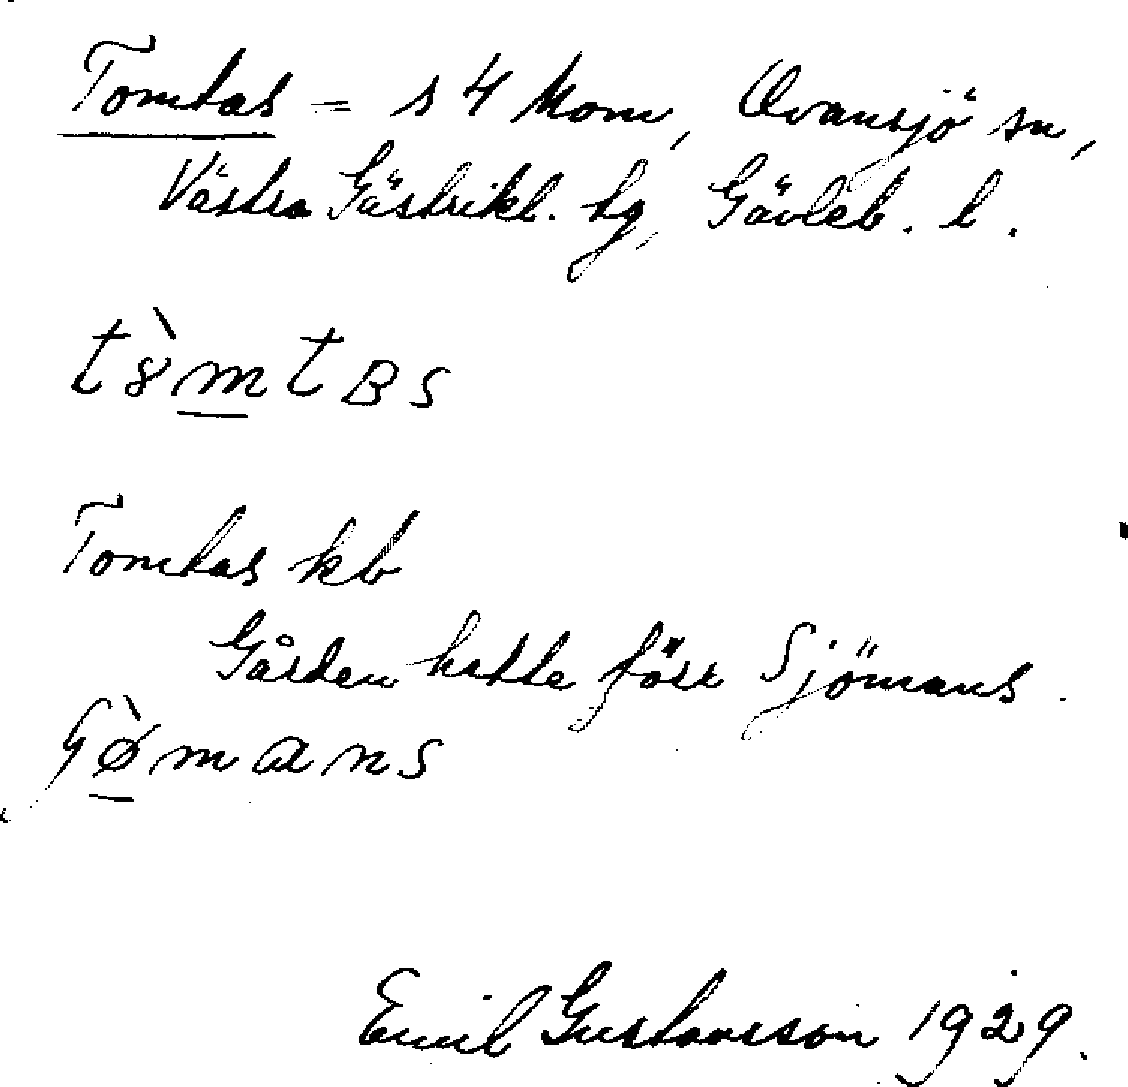 Tomtas = s 4 Mom, Ovansjö sn,
Västra Gästrikl. hg, Gävleb. l.
t8̀mtBs
Tomtas kb
Gården hette förr Sjömans.
ʂø̀mans
Emil Gustavsson 1929.